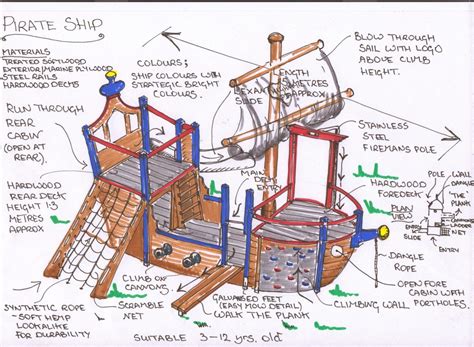 PIRATE SHIP
MATERIALS
TREATED SOFTWOOD
EXTERIOR/MARINE PLYWOOD
STEEL RAILS
HARDWOOD DECKS
COLOURS;
SHIP COLOURS WITH
STRATEGIC BRIGHT
COLOURS.
LENGTH
METRES
APPROX
SLIDE
BLOW THROUGH
SAIL WITH LOGO
ABOVE CLIMB
HEIGHT.
RUN THROUGH
REAR
CABIN
(OPEN AT
REAR).
STAINLESS
STEEL
FIREMANS POLE
HARDWOOD
REAR DECK
HEIGHT 1.3
METRES
APPROX
MAIN
DECK
ENTRY
HARDWOOD
FOREDECK
PLAN
VIEW
POLE
WALL
DANGLE
'THE'
PLANK
CANNONS
LADDER
NET
ENTRY
SLIDE
ENTRY
DANGLE
ROPE
OPEN FORE
CABIN WITH
PORTHOLES.
CLIMBING WALL
SYNTHETIC ROPE
- SOFT HEMP
LOOKALIKE
FOR DURABILITY
SCRAMBLE
NET
CLIMB ON
CANYONS.
GALVANISED FEET
(EASY MOW DETAIL)
WALK THE PLANK
SUITABLE 3-12 yrs. old